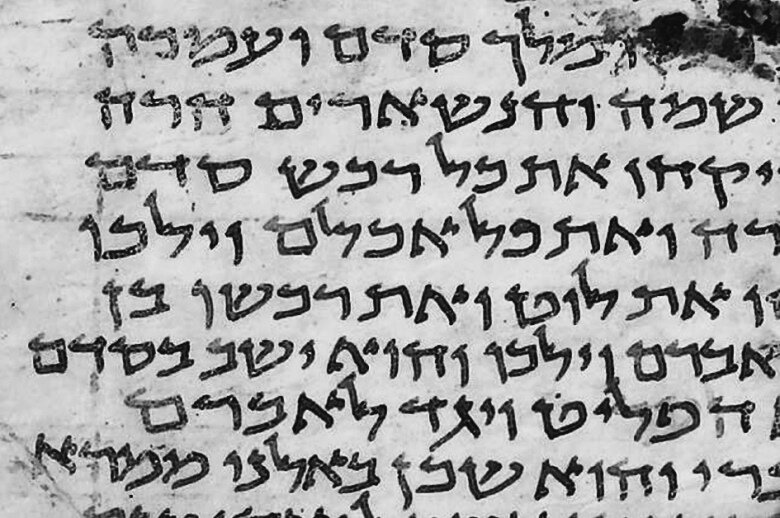 ומלך סדם ועמרה
שמה והנשארים הרה
יקחו את כל רכש סדם
רה ואת כל אכלם וילכו
ו את לוט ואת רכשו בן
אברם וילכו והוא ישב בסדם
הפליט ויגד לאברם
ברי והוא שכן באלני ממרא